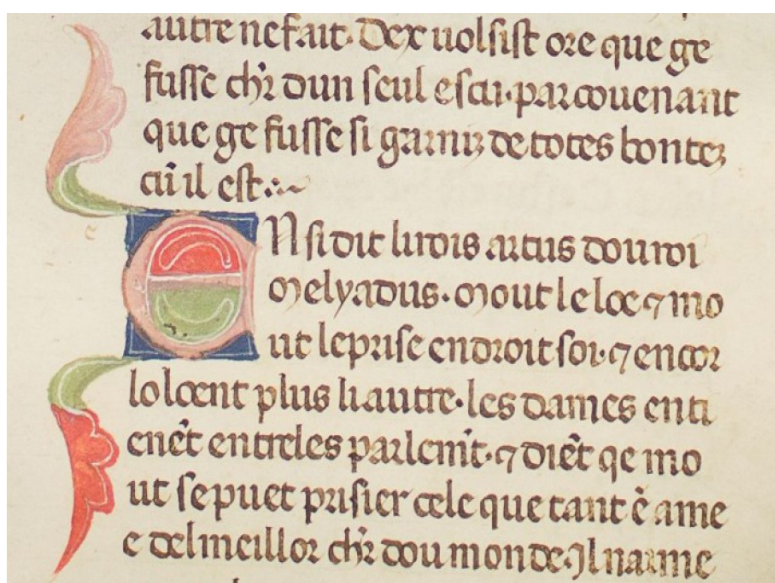 autre nefait. Dex uolsist ore que ge
fusse chr̄ dun seul escu. par couenant
que ge fusse si garniz de totes bontez
cū il est.
EN si dit li rois artus dou roi
Melyadus. Mout le loe ⁊ mo
ut le prise endroit soi. ⁊ encor
lo loent plus li autre. les dames enti
enēt entreles parlem̄t. ⁊ diēt qe mo
ut se puet prisier cele que tant ē ame
e del meillor chr̄ dou monde. Il naime